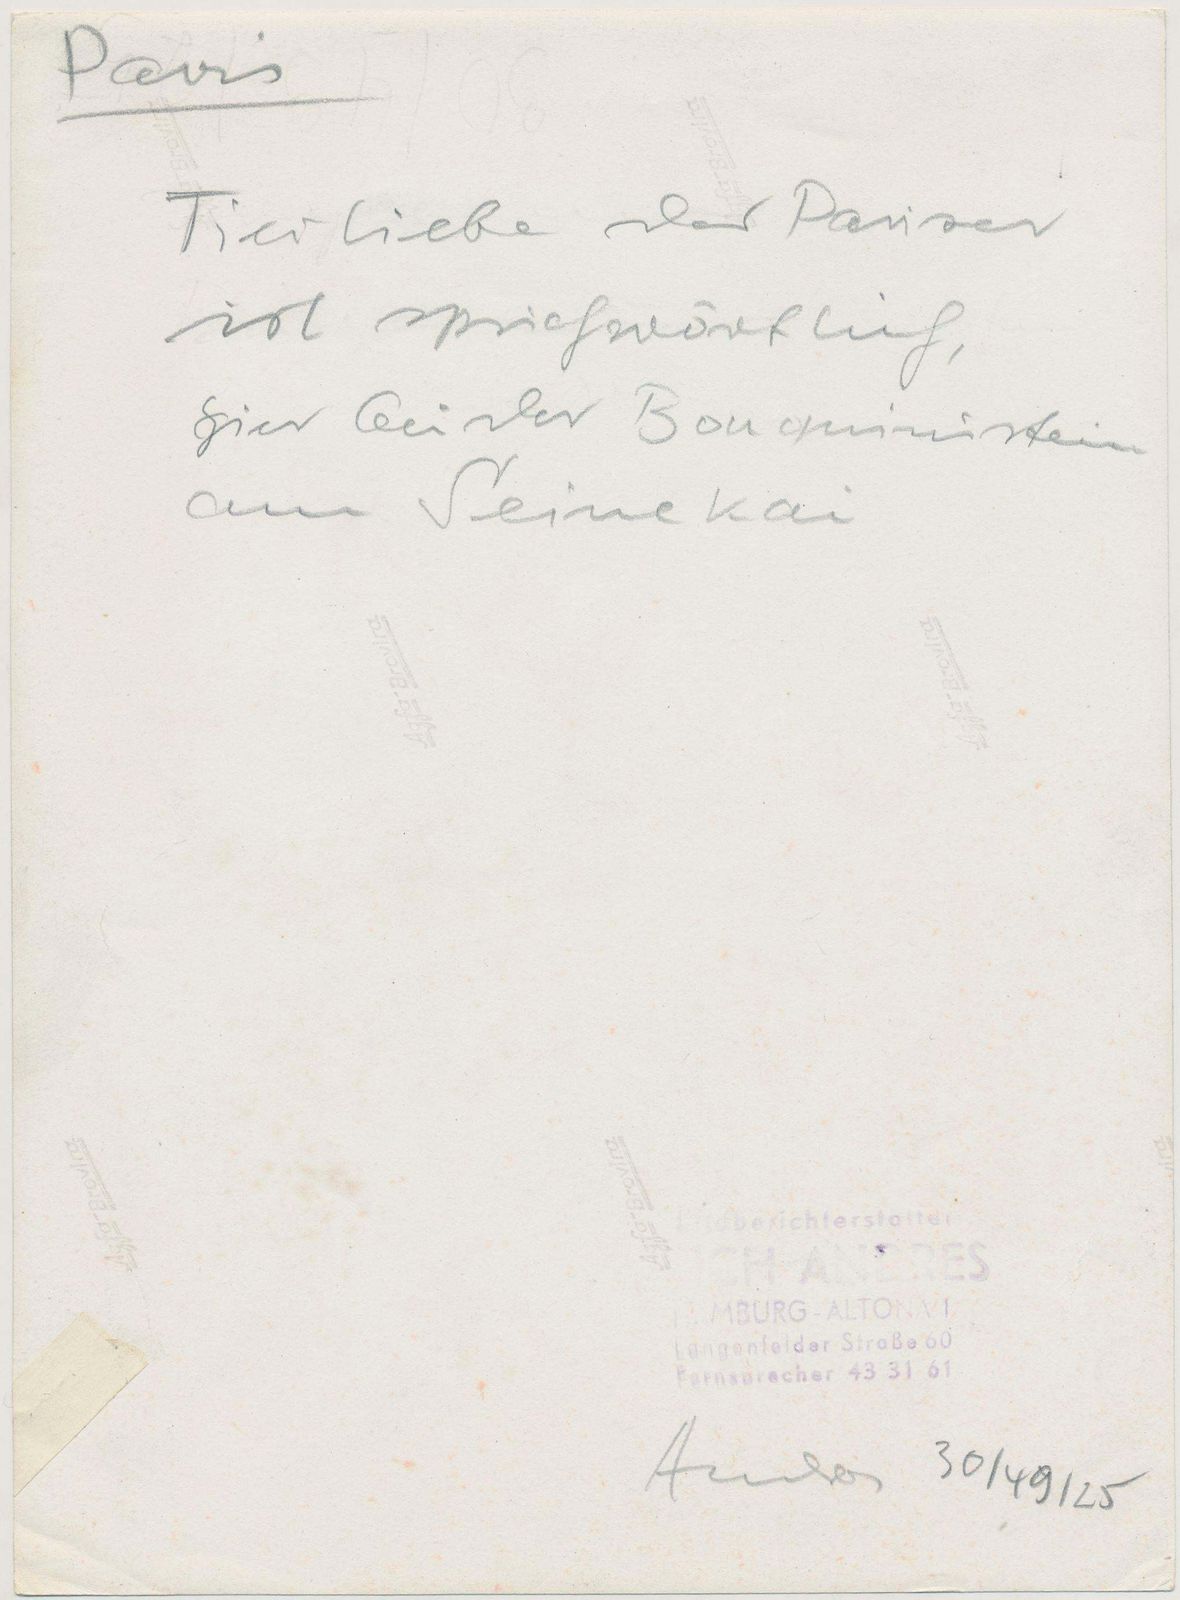 Paris
Tierliebe der Pariser
ist sprichwörtlich,
hier bei der Bouquinistin
am Seinekai
Agfa-Brovira
Agfa-Brovira
Agfa-Brovira
Agfa-Brovira
Agfa-Brovira
Agfa-Brovira
berichterstatter
ICH ANDRES
MBURG-ALTONA 1
Langenfelder Straße 60
Fernsprecher 43 31 61
Andres 30/49/25